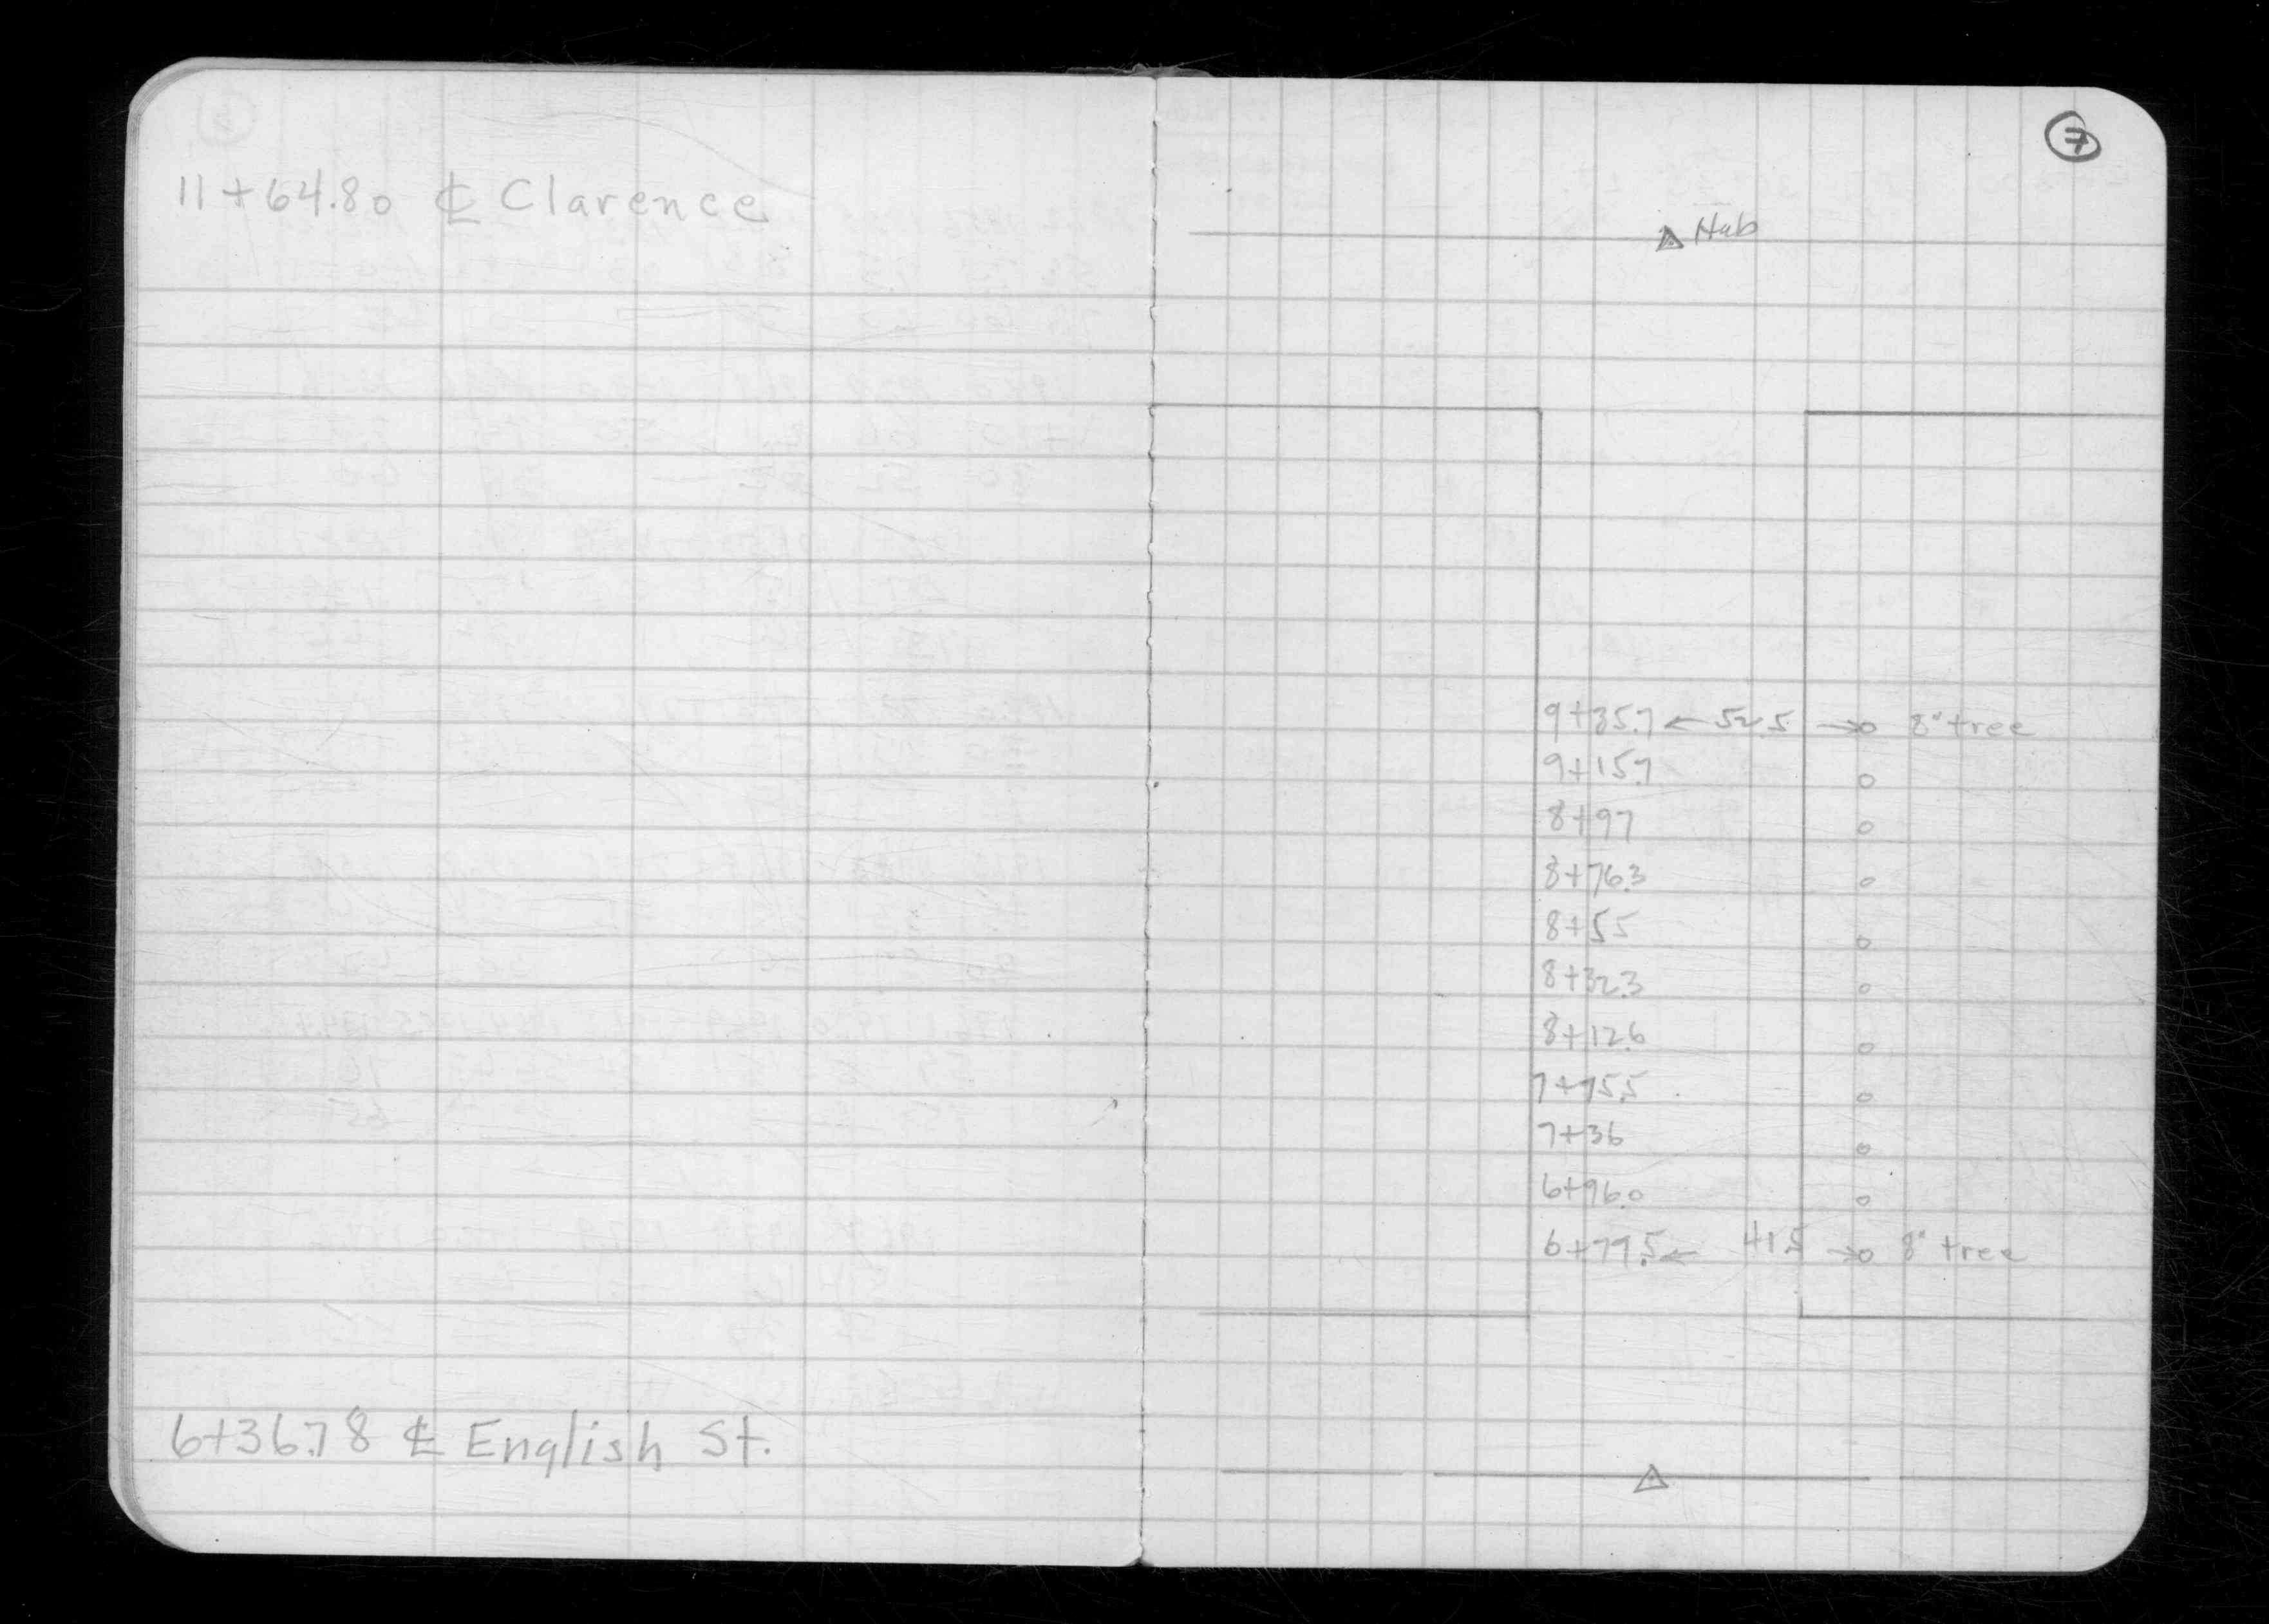 11+64.80 ℄ Clarence
6+36.78 ℄ English St.
7
Hub
9+35.7 ← 52.5 → 8" tree
9+15.7
8+97
8+76.3
8+55
8+32.3
8+12.6
7+75.5
7+36
6+96.0
6+77.5 ← 41.5 → 8" tree